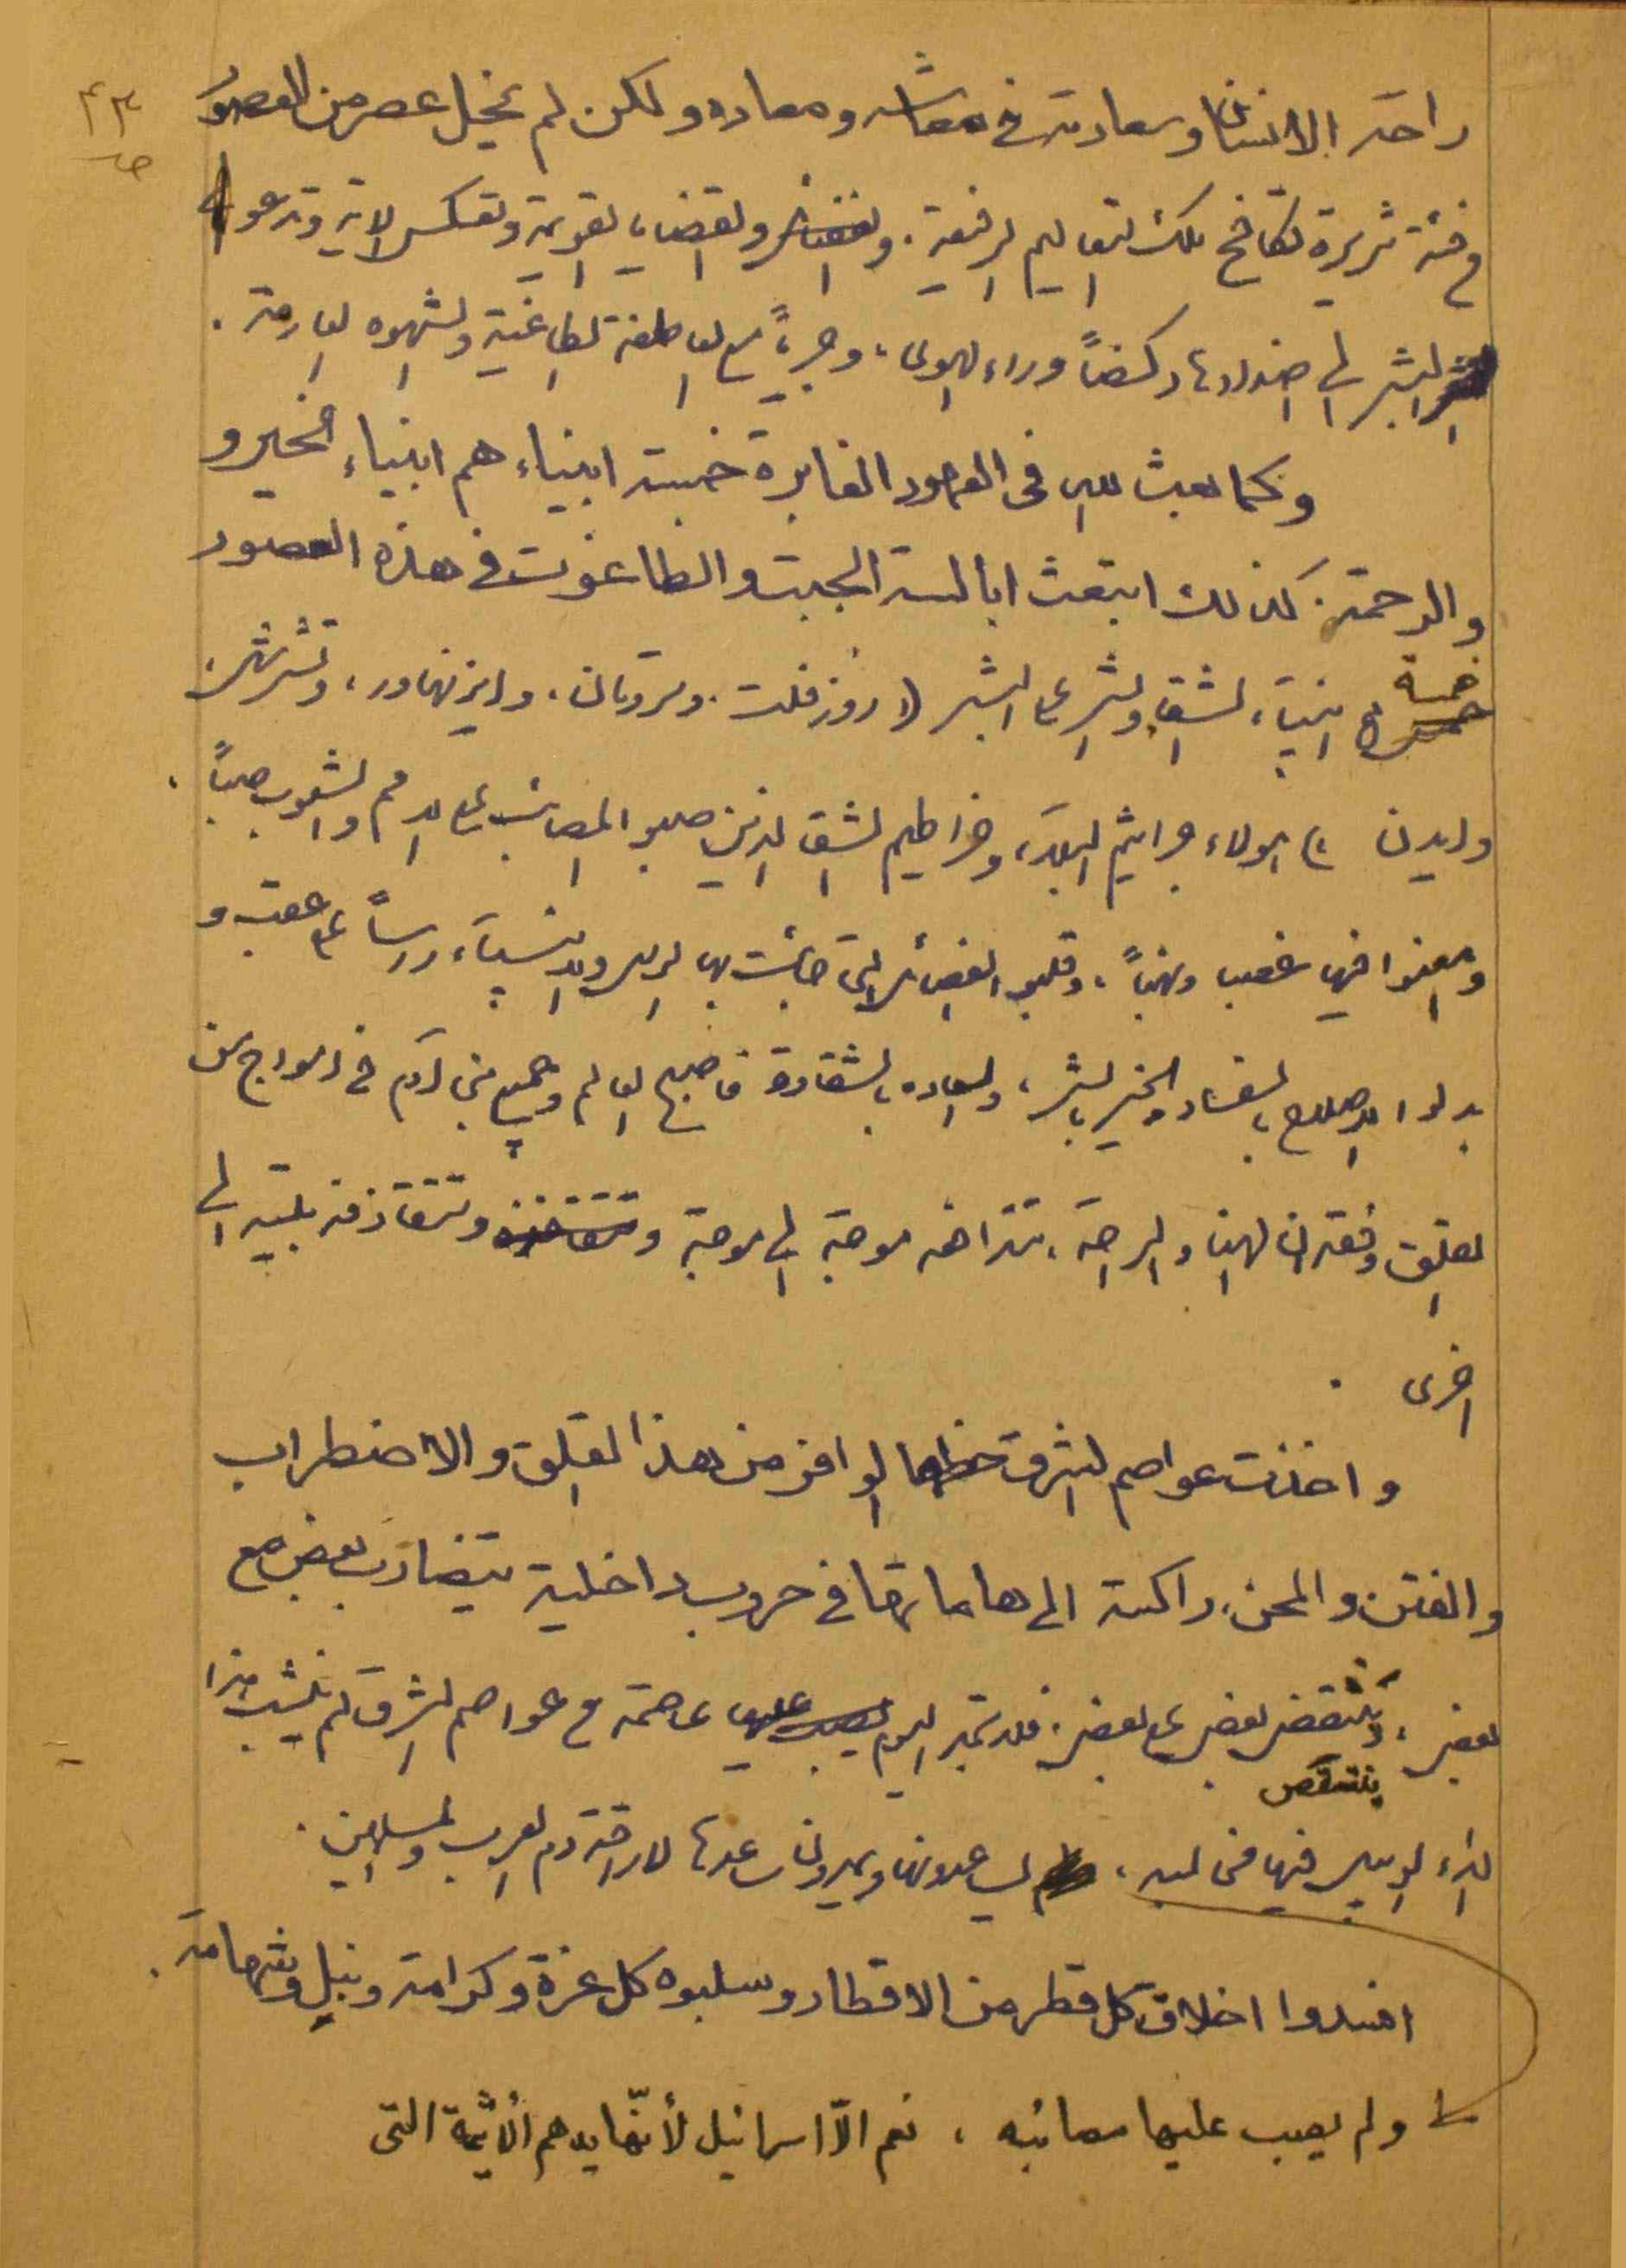 ٤٣
راحة الانسان وسعادته في معاشه ومعاده ولكن لم يخل عصر من العصور
من فئة شريرة تكافح تلك التعاليم الرفيعة . والقضايا القويمة وتعكس الاية وتدعو
البشر الى اضدادها ركضاً وراء الهوى ، وجرياً مع العاطفة الطاغية والشهوه العارمة .
وكما بعث الله في العهود الغابرة خمسة انبياء هم انبياء الخير و
والرحمة . كذلك ابتعث ابالسة الجبت والطاغوت في هذه العصور
خمسة انبياء الشقاء والشر على البشر (روزفلت . وترومان ، وايزنهاور ، وتشرشل ،
وايدن ) هولاء جراثيم البلاء ، وخراطيم الشقاء الذين صبوا المصائب على الامم والشعوب صباً ،
وامعنوا فيها غصبا ونهباً ، وقلبوا الفضائل التي جائت بها الرسل والانبياء رأساً على عقب و
بدلوا الاصلاح بالفساد والخير بالشر ، والسعاده بالشقاوة فاصبح العالم وجميع بني آدم في امواج من
القلق وفقدان الهناء والراحة ، تتدافعه موجة الى موجة وتتقاذفه بلية الى
اخرى .
واخذت عواصم الشرق حظها الوافر من هذا القلق والاضطراب
والفتن والمحن ، راكسة الى هاماتها في حروب داخلية يتضارب بعض مع
بعض ، وينتقض بعض على بعض . فلا تجد اليوم عاصمة من عواصم الشرق لم ينشب هذا
ينتقص
الداء الوبيل فيها مخالبه ، يساعدونها ويمدون ساعدها لاراقة دم العرب والمسلمين .
افسدوا اخلاق كل قطر من الاقطار وسلبوه كل عزة وكرامة ونبل وشهامة .
ولم يصب عليها مصائبه ، نعم الاّ اسرائيل لأنّها يدهم الأثيمة التى